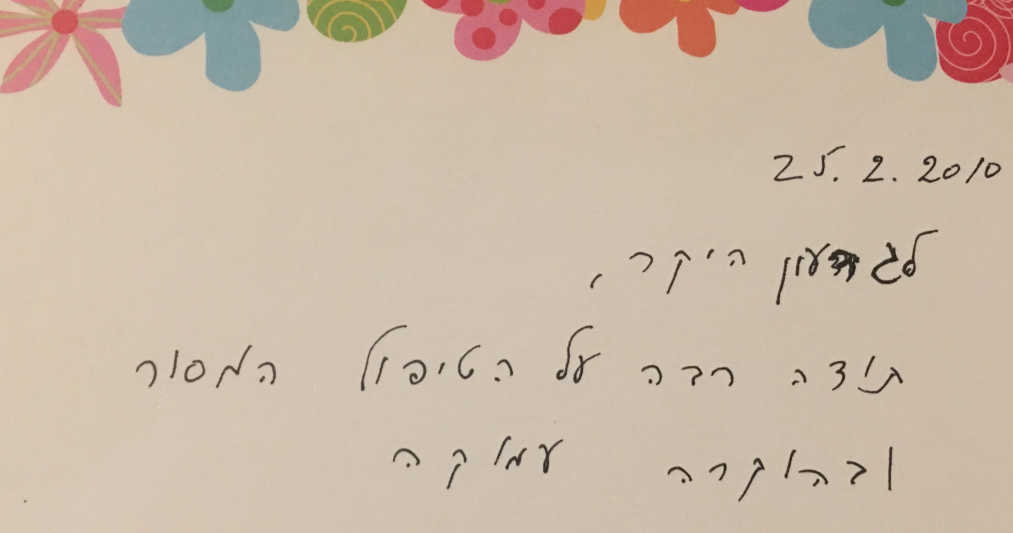 25.2.2010
לגדעון היקר,
תודה רבה על הטיפול המסור
ובהוקרה עמוקה